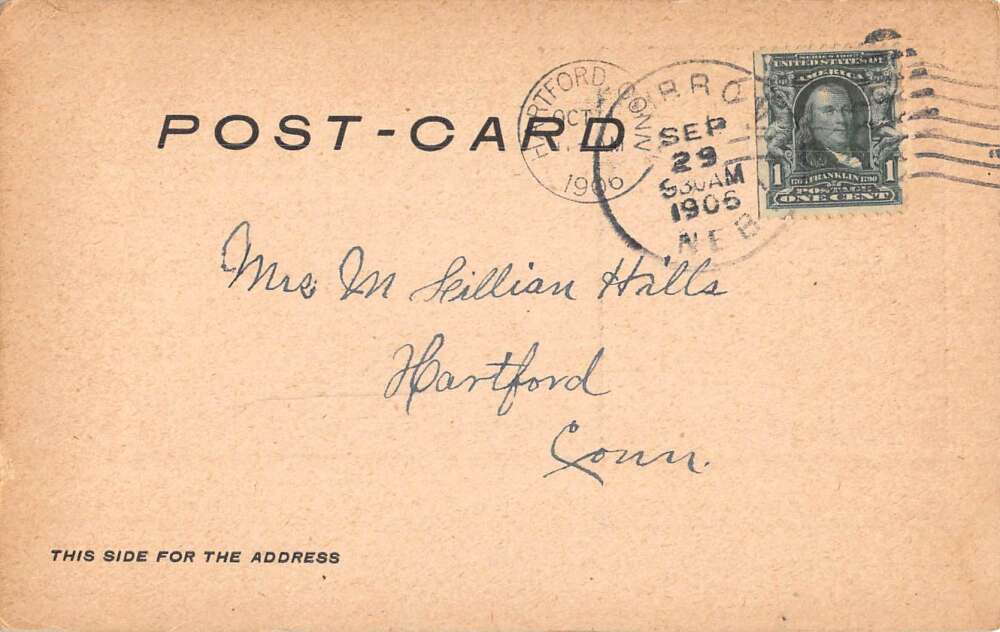 POST-CARD
HARTFORD CONN
OCT
1906
SEP
29
930AM
1906
NEB
SERIES 1902
UNITED STATES OF
AMERICA
1 FRANKLIN 1
POSTAGE
ONE CENT
Mrs M Lillian Hills
Hartford
Conn.
THIS SIDE FOR THE ADDRESS